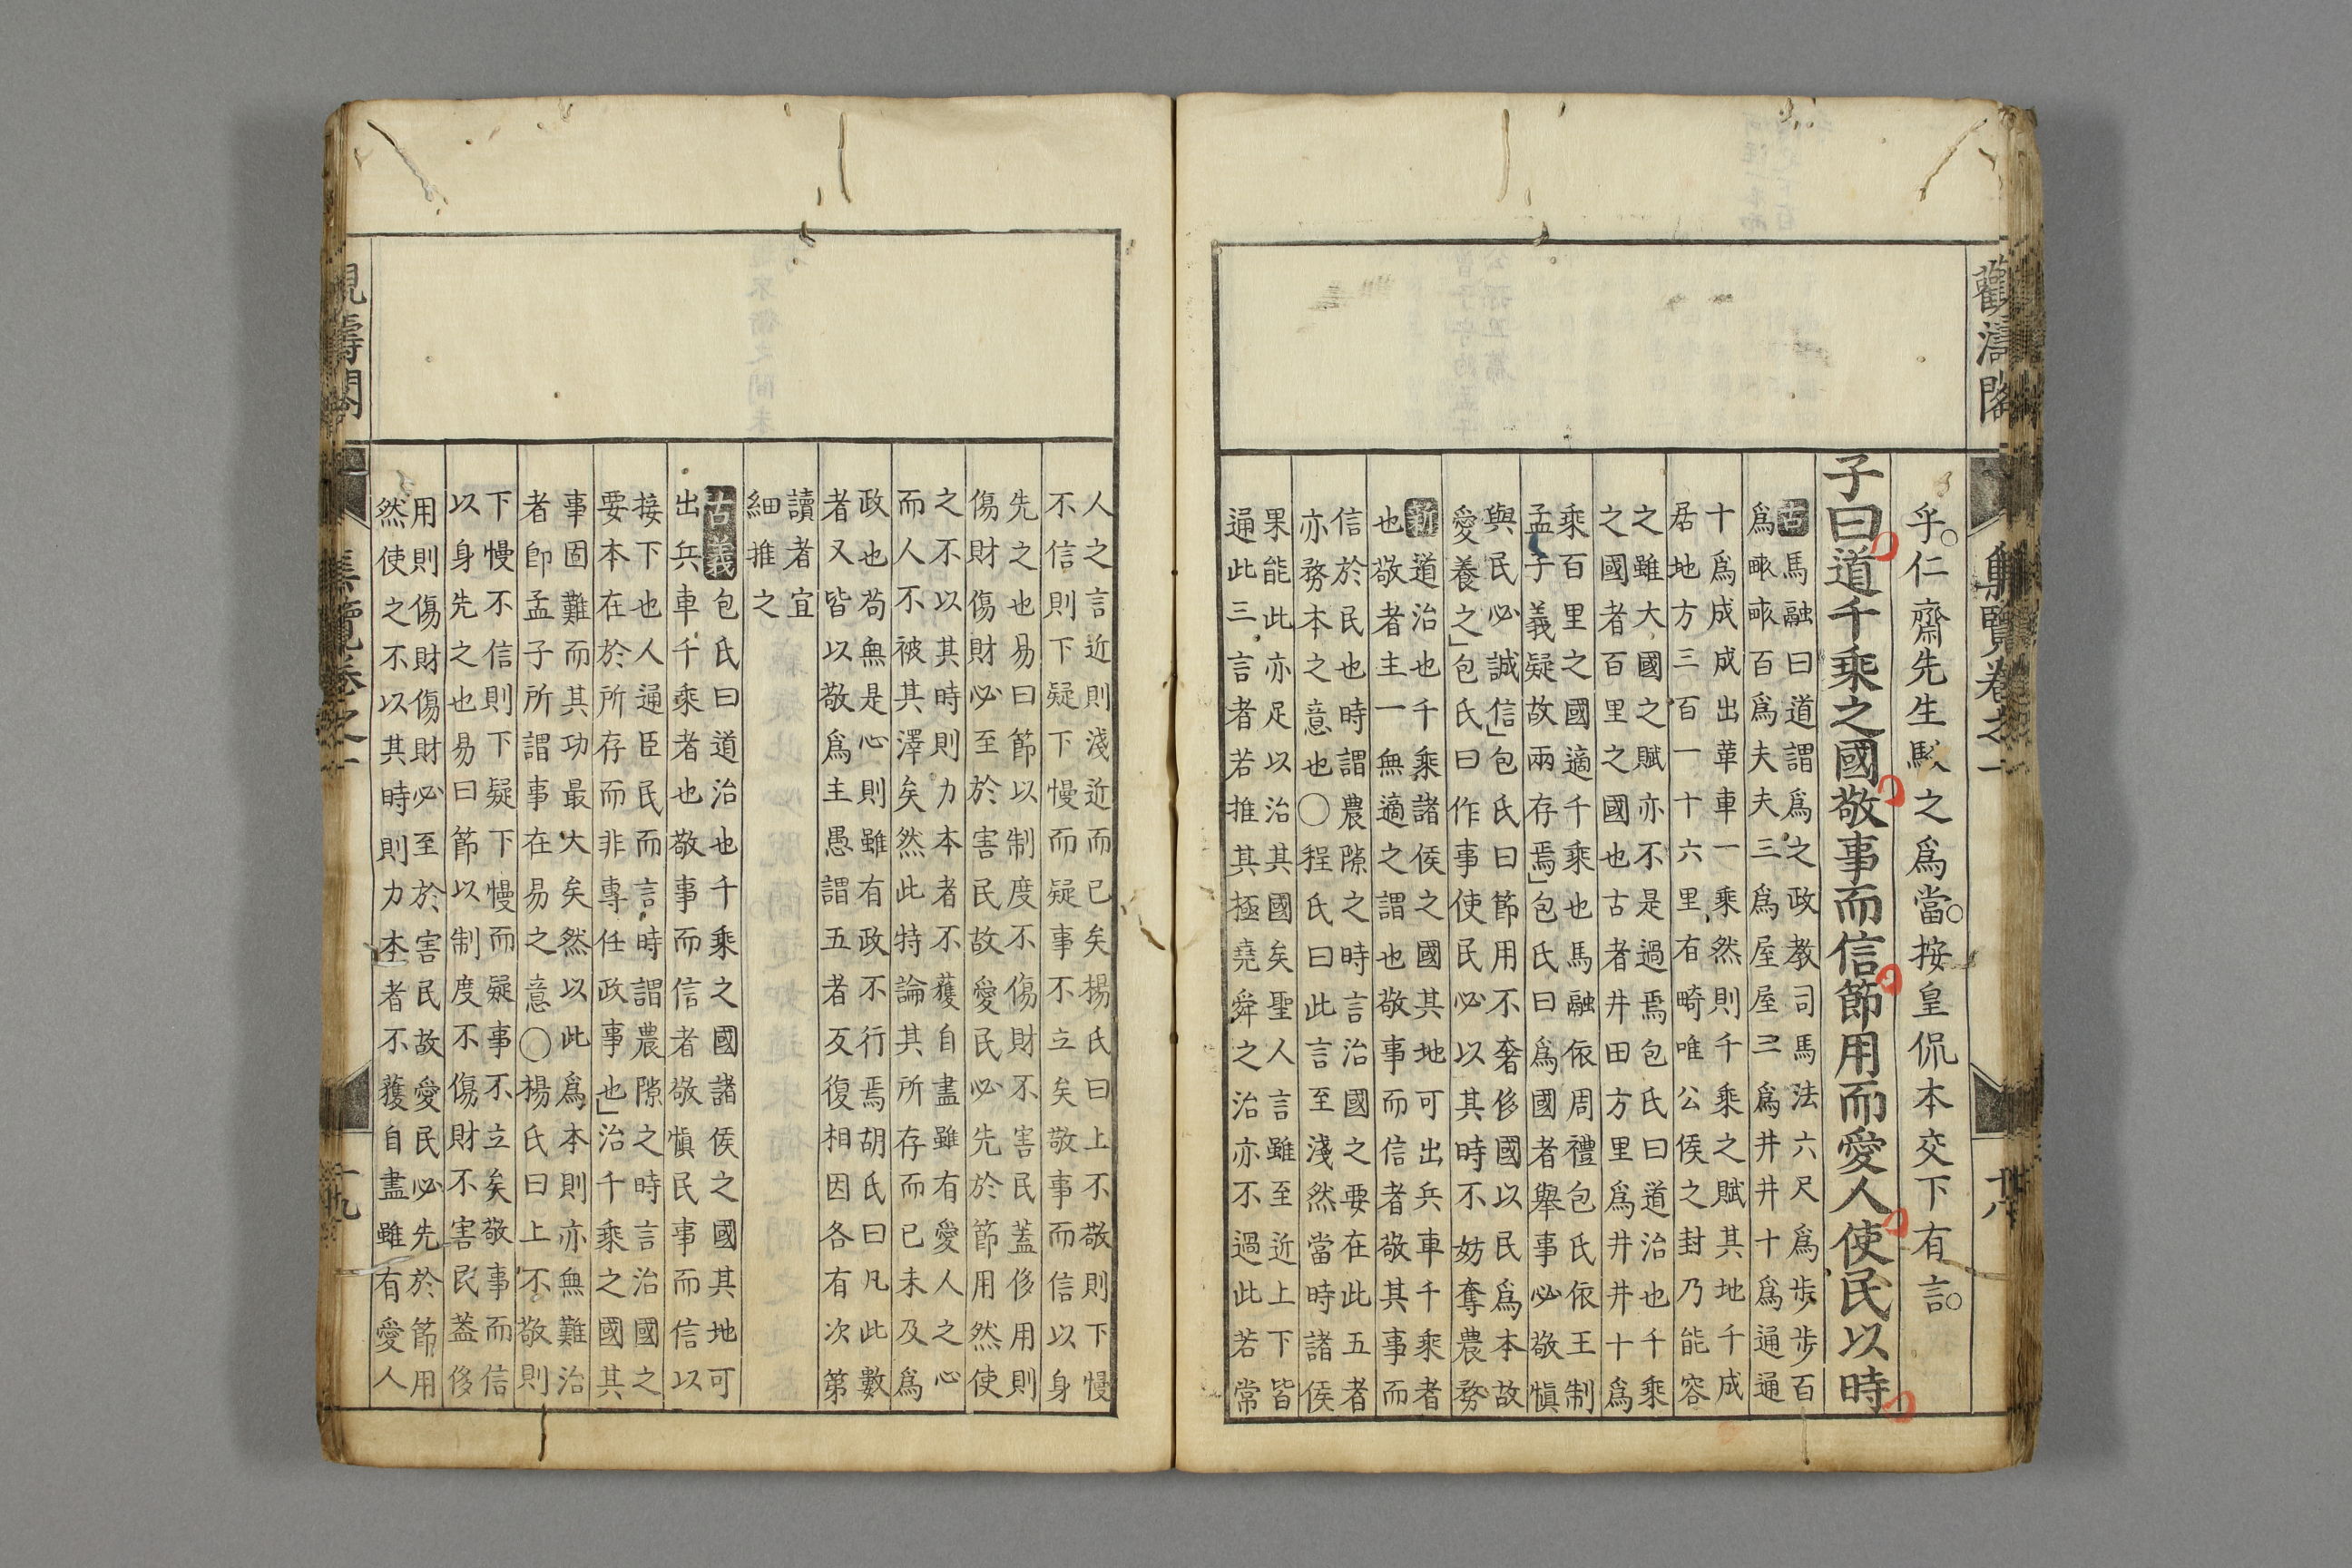 觀濤閣
集覽卷之一
十八
乎仁齋先生駁之爲當按皇侃本交下有言
子曰道千乘之國敬事而信節用而愛人使民以時
古馬融曰道謂爲之政教司馬法六尺爲步步百
爲畞畞百爲夫夫三爲屋屋三爲井井十爲通通
十爲成成出革車一乘然則千乘之賦其地千成
居地方三百一十六里有畸唯公侯之封乃能容
之雖大國之賦亦不是過焉包氏曰道治也千乘
之國者百里之國也古者井田方里爲井井十爲
乘百里之國適千乘也馬融依周禮包氏依王制
孟子義疑故兩存焉」包氏曰爲國者舉事必敬愼
與民必誠信」包氏曰節用不奢侈國以民爲本故
愛養之」包氏曰作事使民必以其時不妨奪農務
新道治也千乘諸侯之國其地可出兵車千乘者
也敬者主一無適之謂也敬事而信者敬其事而
信於民也時謂農隙之時言治國之要在此五者
亦務本之意也〇程氏曰此言至淺然當時諸侯
果能此亦足以治其國矣聖人言雖至近上下皆
通此三言者若推其極堯舜之治亦不過此若常
人之言近則淺近而已矣楊氏曰上不敬則下慢
不信則下疑下慢而疑事不立矣敬事而信以身
先之也易曰節以制度不傷財不害民蓋侈用則
傷財傷財必至於害民故愛民必先於節用然使
之不以其時則力本者不獲自盡雖有愛人之心
而人不被其澤矣然此特論其所存而已未及爲
政也苟無是心則雖有政不行焉胡氏曰凡此數
者又皆以敬爲主愚謂五者反復相因各有次第
讀者宜
細推之
古義包氏曰道治也千乘之國諸侯之國其地可
出兵車千乘者也敬事而信者敬愼民事而信以
接下也人通臣民而言時謂農隙之時言治國之
要本在於所存而非專任政事也」治千乘之國其
事固難而其功最大矣然以此爲本則亦無難治
者卽孟子所謂事在易之意〇楊氏曰上不敬則
下慢不信則下疑下慢而疑事不立矣敬事而信
以身先之也易曰節以制度不傷財不害民蓋侈
用則傷財傷財必至於害民故愛民必先於節用
然使之不以其時則力本者不獲自盡雖有愛人
觀濤閣
集覽卷之一
十九